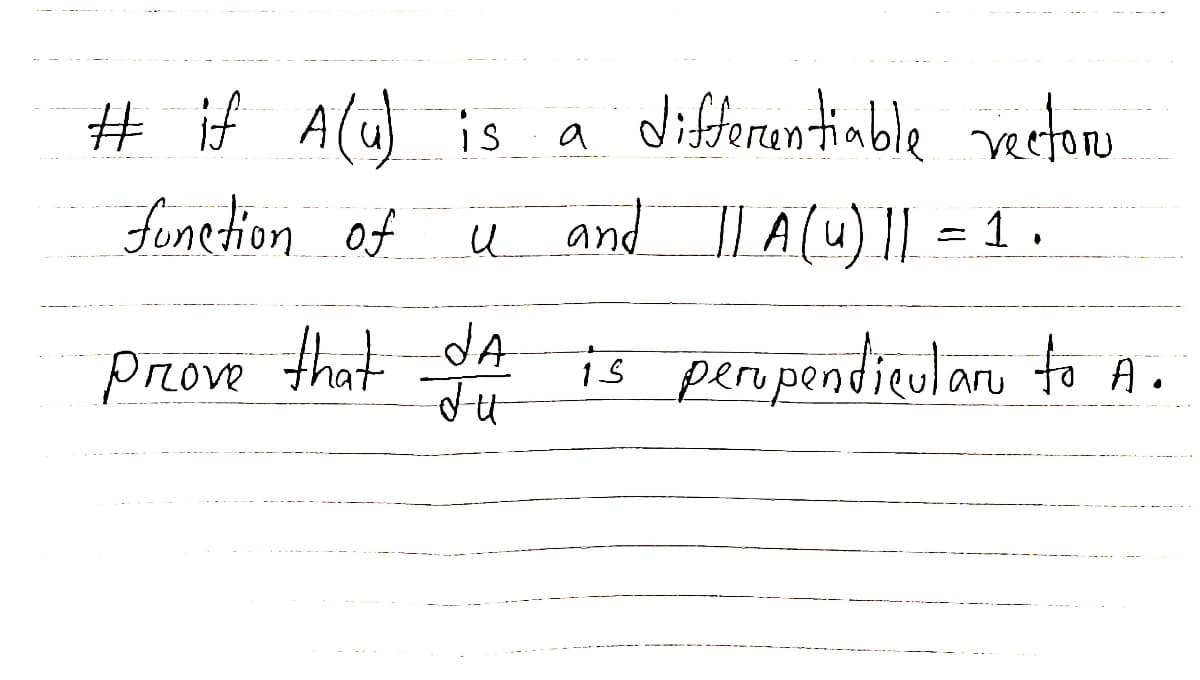 # if A(u) is a differentiable vector
function of u and || A(u) || = 1.
prove that dA/du is perpendicular to A.